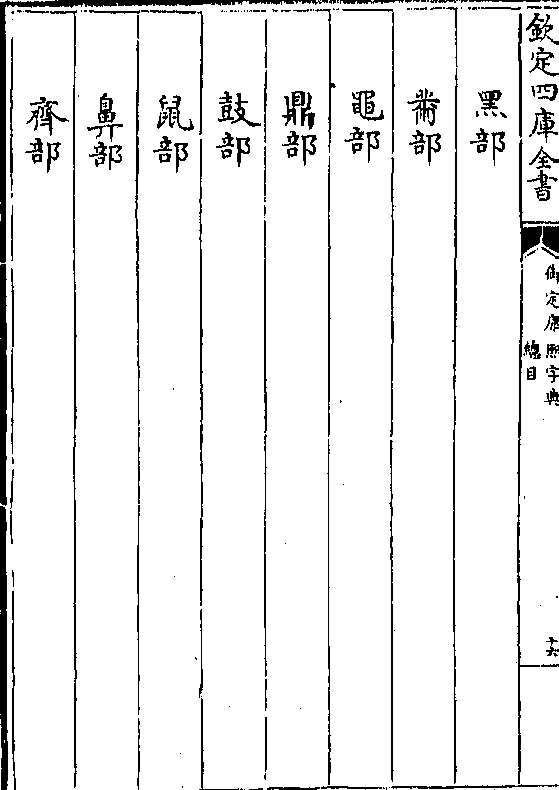 欽定四庫全書
御定康熙字典
總目
十六
黑部
黹部
黽部
鼎部
鼓部
鼠部
鼻部
齊部